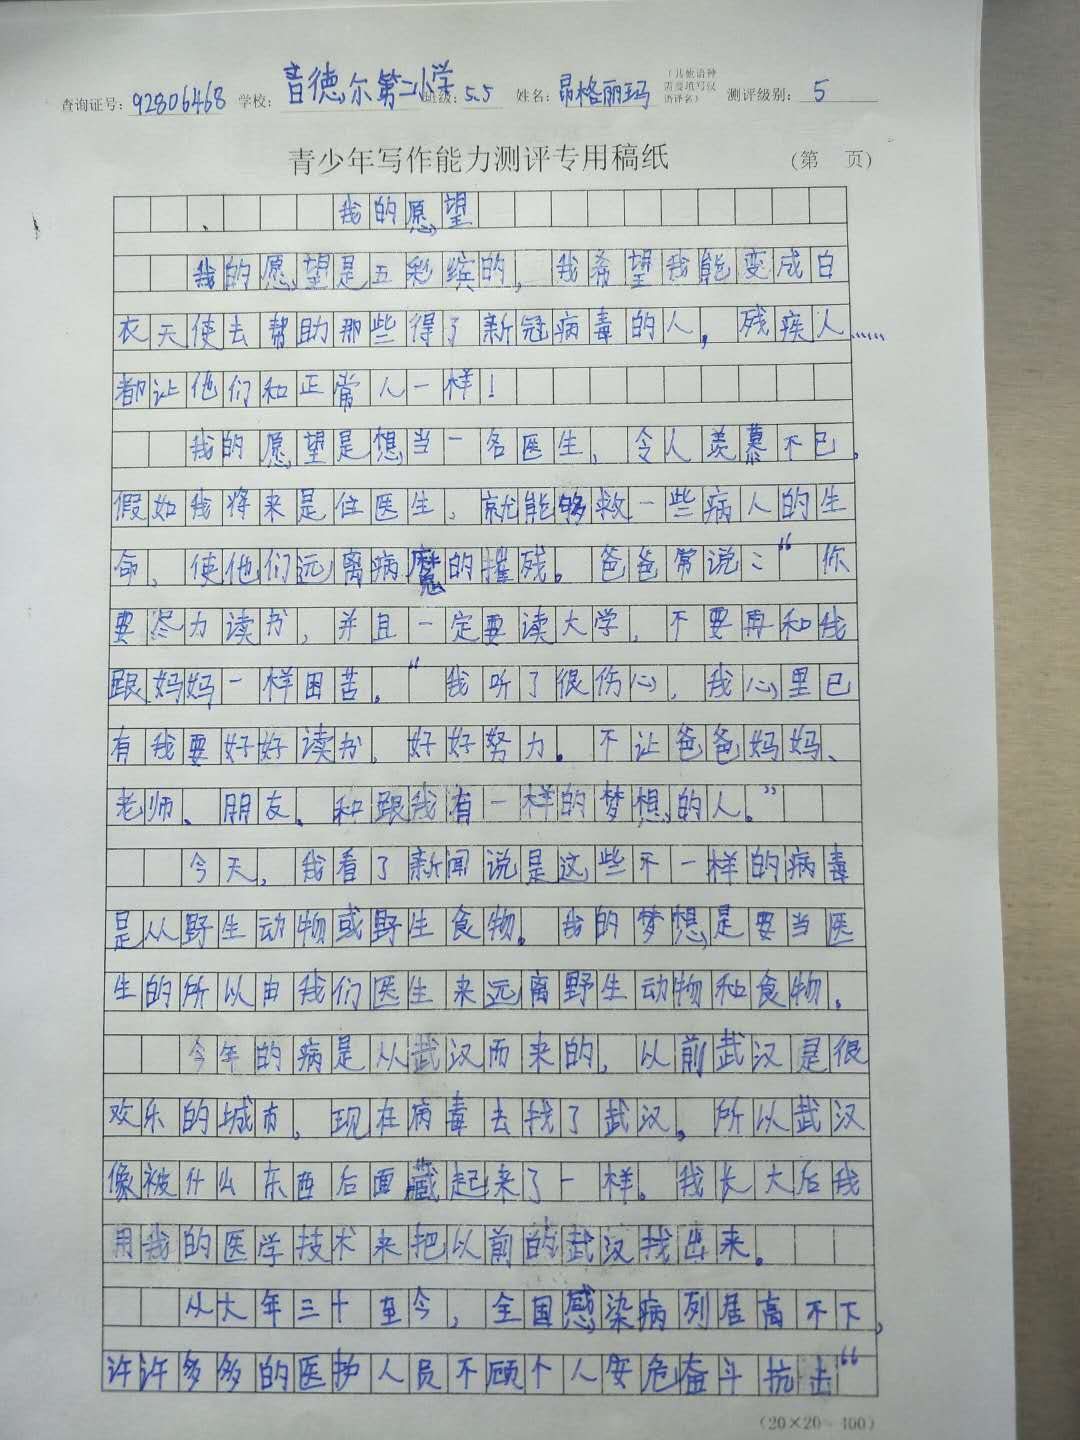 查询证号：92806468 学校：音德尔第二小学 班级：5.5 姓名：昂格丽玛 （其他语种需要填写汉语译名） 测评级别：5
青少年写作能力测评专用稿纸 （第 页）
我的愿望
我的愿望是五彩缤的，我希望我能变成白
衣天使去帮助那些得了新冠病毒的人，残疾人……
都让他们和正常人一样！
我的愿望是想当一名医生，令人羡慕不已，
假如我将来是位医生，就能够救一些病人的生
命，使他们远离病魔的摧残。爸爸常说：“你
要尽力读书，并且一定要读大学，不要再和我
跟妈妈一样困苦。“我听了很伤心，我心里已
有我要好好读书，好好努力。不让爸爸妈妈、
老师、朋友、和跟我有一样的梦想的人。”
今天，我看了新闻说是这些不一样的病毒
是从野生动物或野生食物。我的梦想是要当医
生的所以由我们医生来远离野生动物和食物。
今年的病是从武汉而来的，以前武汉是很
欢乐的城市，现在病毒去找了武汉，所以武汉
像被什么东西后面藏起来了一样。我长大后我
用我的医学技术来把以前的武汉找出来。
从大年三十至今，全国感染病列居高不下，
许许多多的医护人员不顾个人安危奋斗抗击“
（20×20=400）